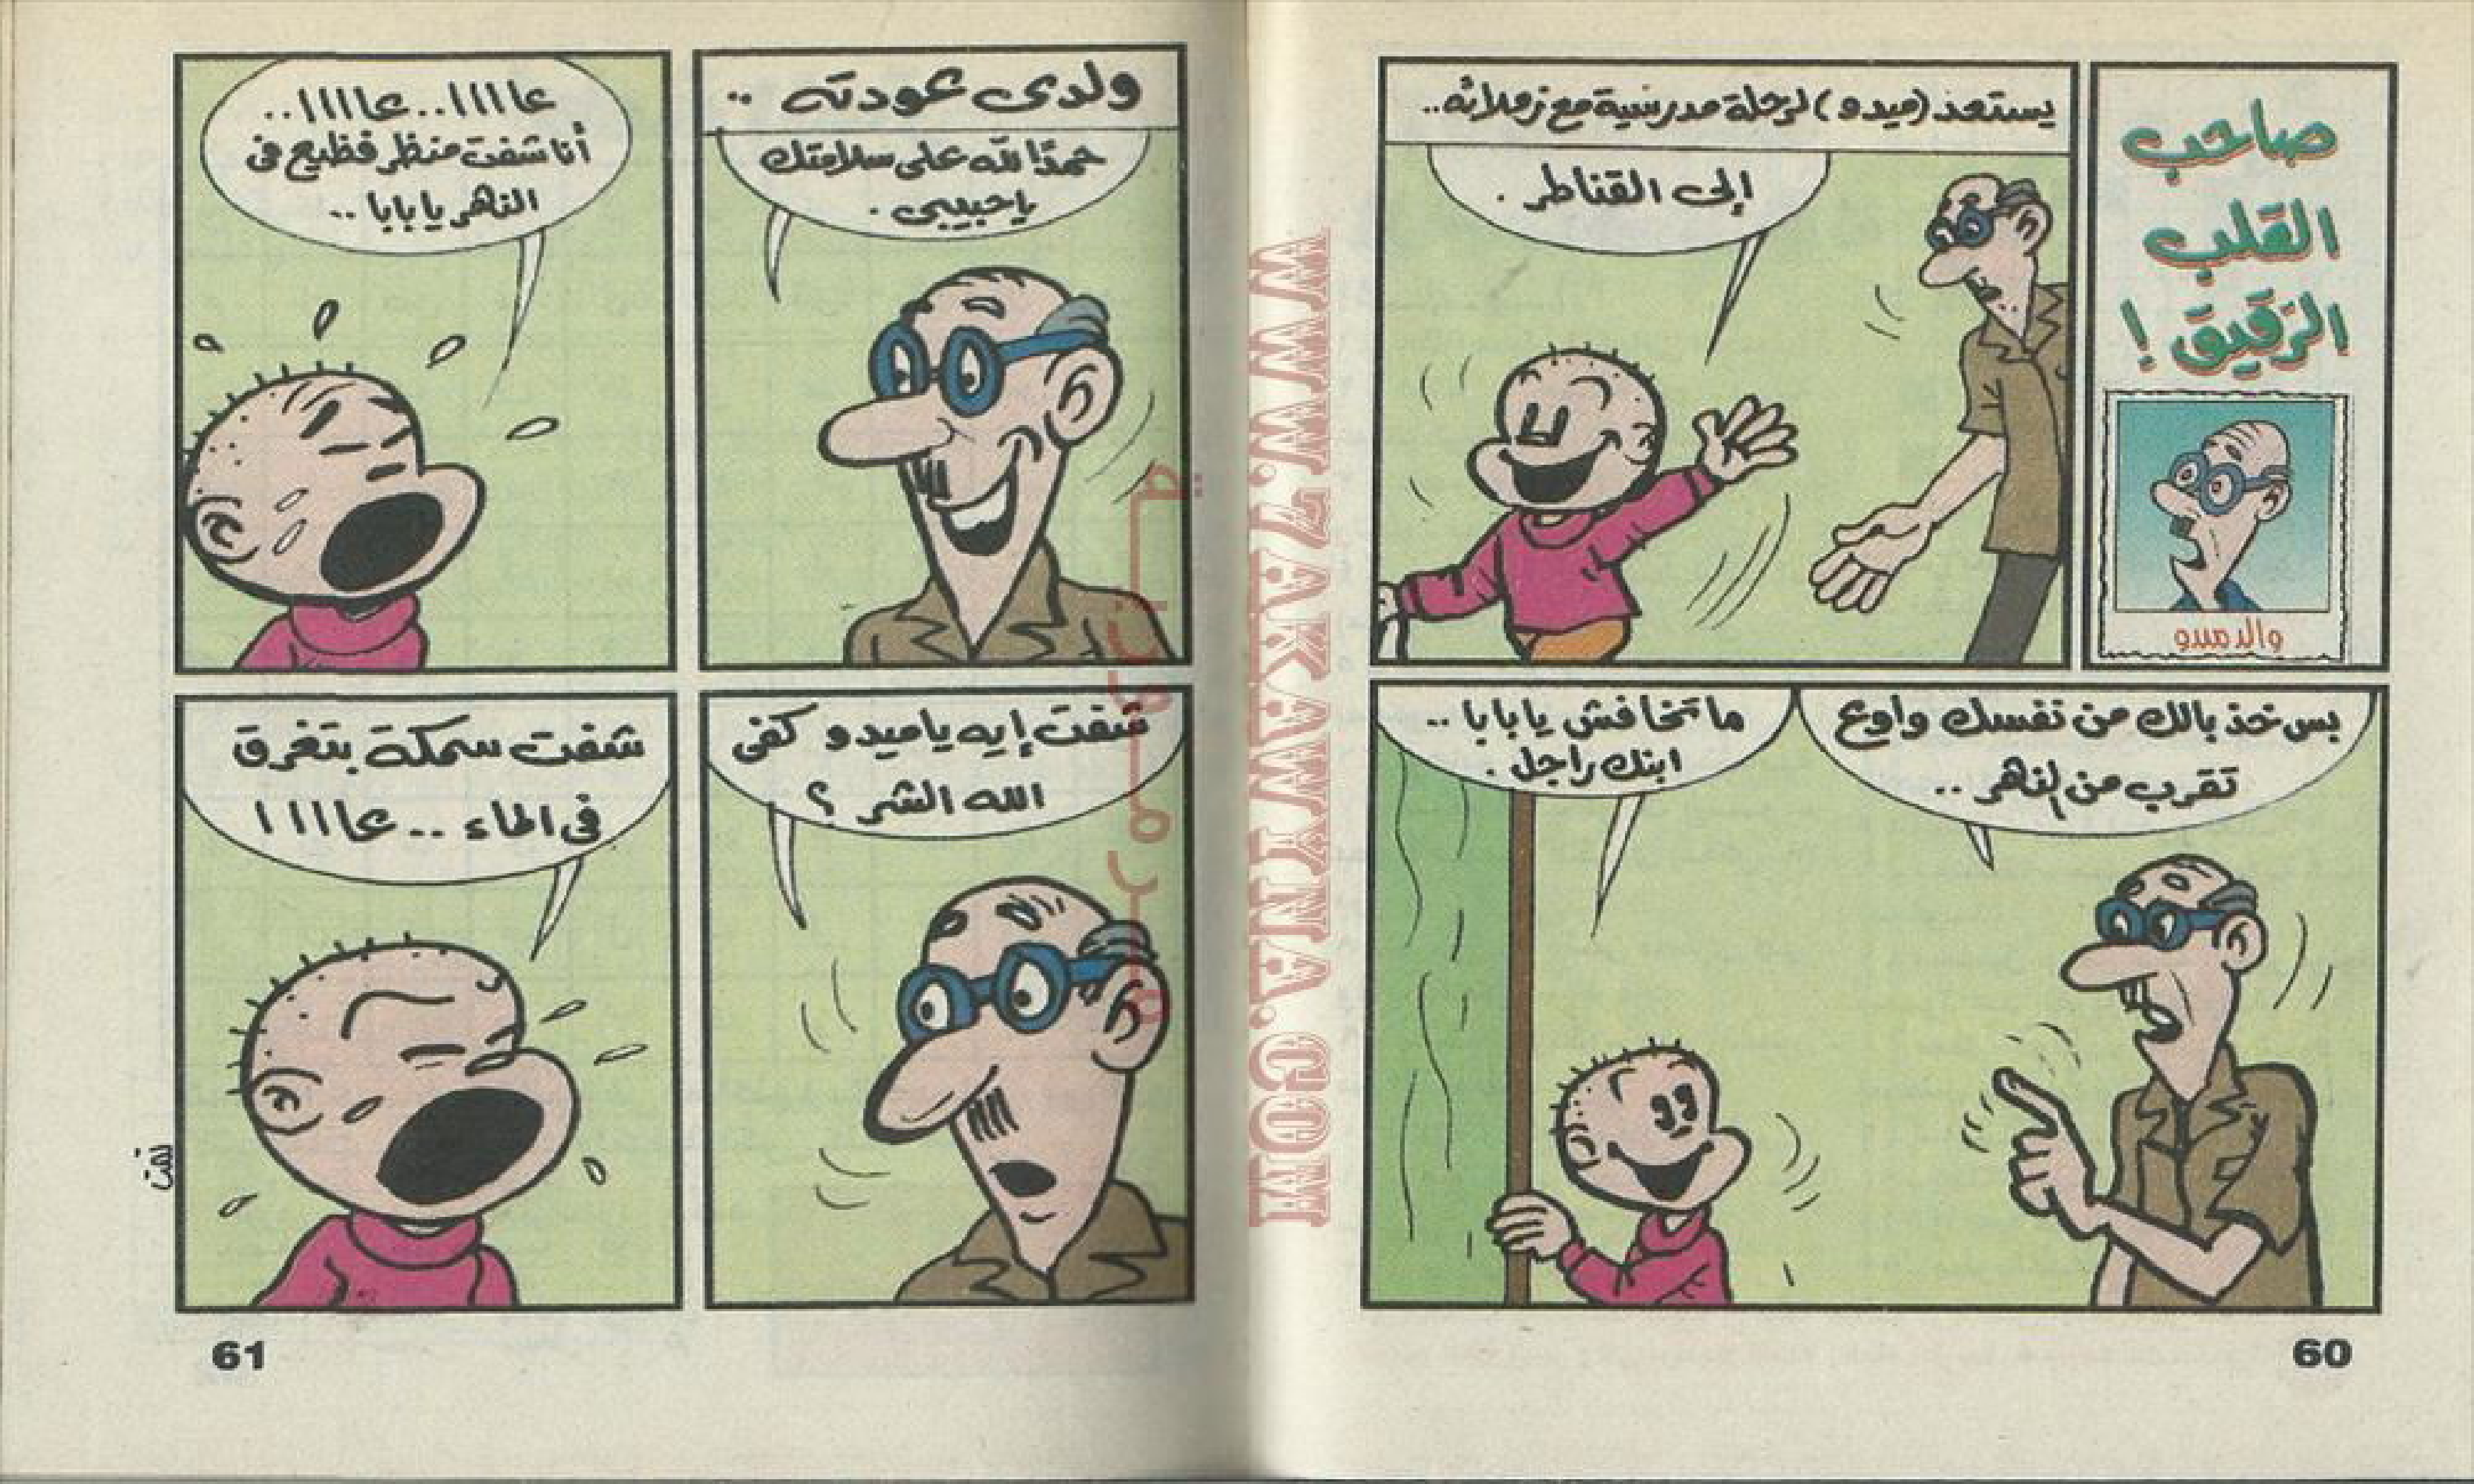 صاحب
القلب
الرقيق !
والد ميدو
يستعد (ميدو) لرحلة مدرسية مع زملائه..
إلى القناطر .
بس خذ بالك من نفسك واوع
تقرب من النهر ..
ما تخافش يا بابا ..
ابنك راجل .
60
WWW.ZAKAWTNA.COM
ولدى عودته ..
حمدًا لله على سلامتك
ياحبيبى .
عاااا.. عاااا..
أنا شفت منظر فظيع فى
النهر يا بابا ..
شفت إيه ياميدو كفى
الله الشر ؟
شفت سمكة بتغرق
فى الماء .. عاااا
61